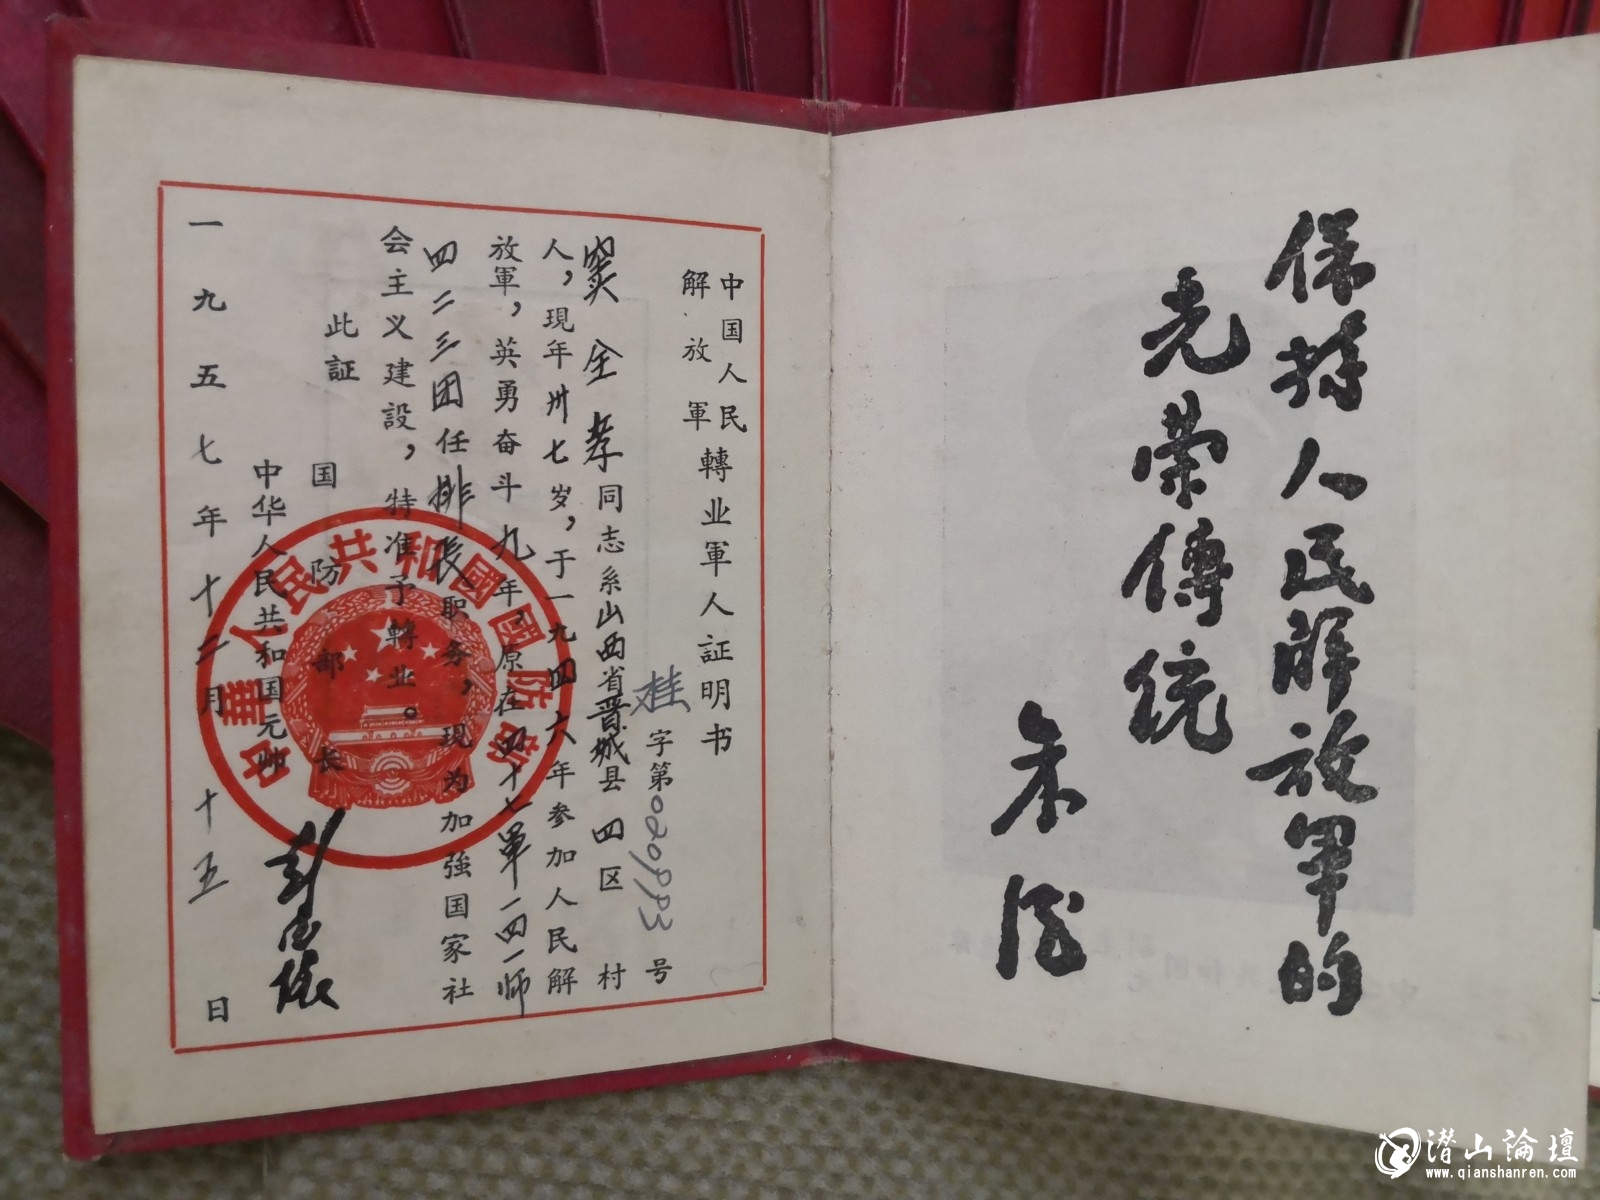 保持人民解放军的
光荣傳統
朱德
中国人民
解放軍
轉业軍人証明书
桂字第020993号
窦全孝同志系山西省晋城县四区 村
人，現年卅七岁，于一九四六年参加人民解
放軍，英勇奋斗九年，原在四十七軍一四一师
四二三团任排長职务，現为加強国家社
会主义建設，特准予轉业。
此証
国防部长
中华人民共和国元帅
彭德懷
一九五七年十二月十五日
中華人民共和國國防部
潜山論壇
www.qianshanren.com